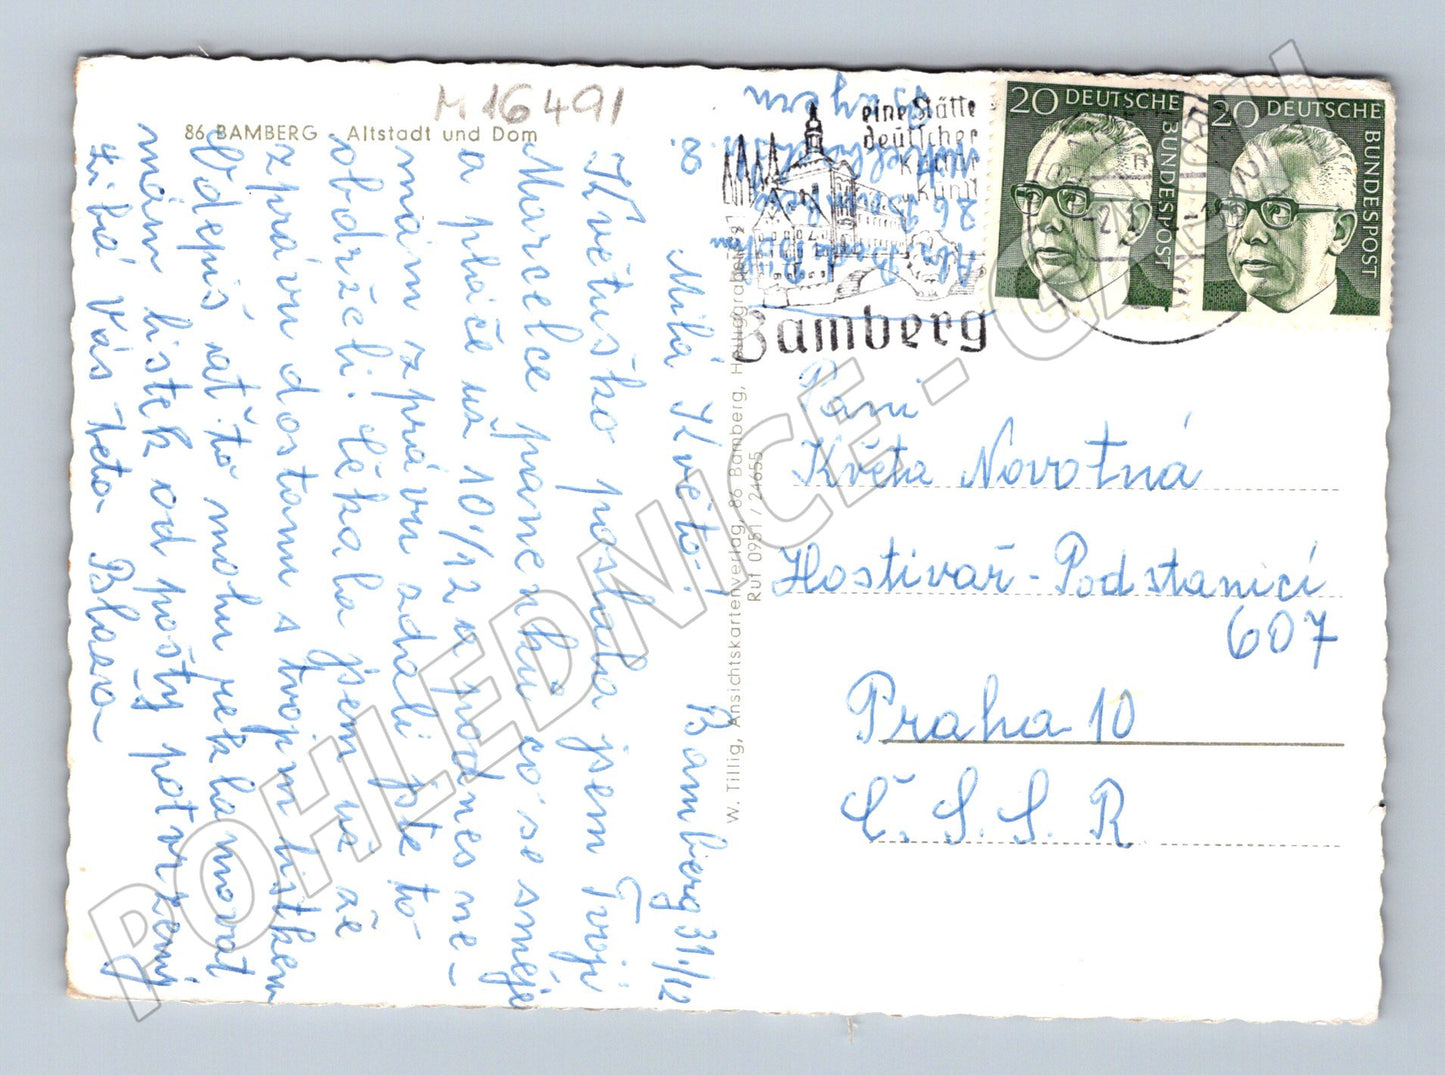 M 16491
86 BAMBERG - Altstadt und Dom
Bamberg 31./12
Milá Květo!
Květuško poslala jsem Tvoji
Marcelce panenku co se směje
a pláče už 10./12 a podnes ne-
mám zprávu zdali jste to
obdrželi. Čekala jsem už až
zprávu dostanu s tvojim lístkem
Odepiš ať to mohu reklamovat
mám lístek od pošty potvrzený
Líbá Vás teta Blaza
W. Tillig, Ansichtskartenverlag, 86 Bamberg, Heiliggrabstr.
Ruf 0951 / 24655
eine Stätte
deutscher
Kunst
Bamberg
20 DEUTSCHE BUNDESPOST
20 DEUTSCHE BUNDESPOST
Bayern
Paní
Květa Novotná
Hostivař - Podstanicí
607
Praha 10
Č.S.S.R
POHLEDNICE - GABU